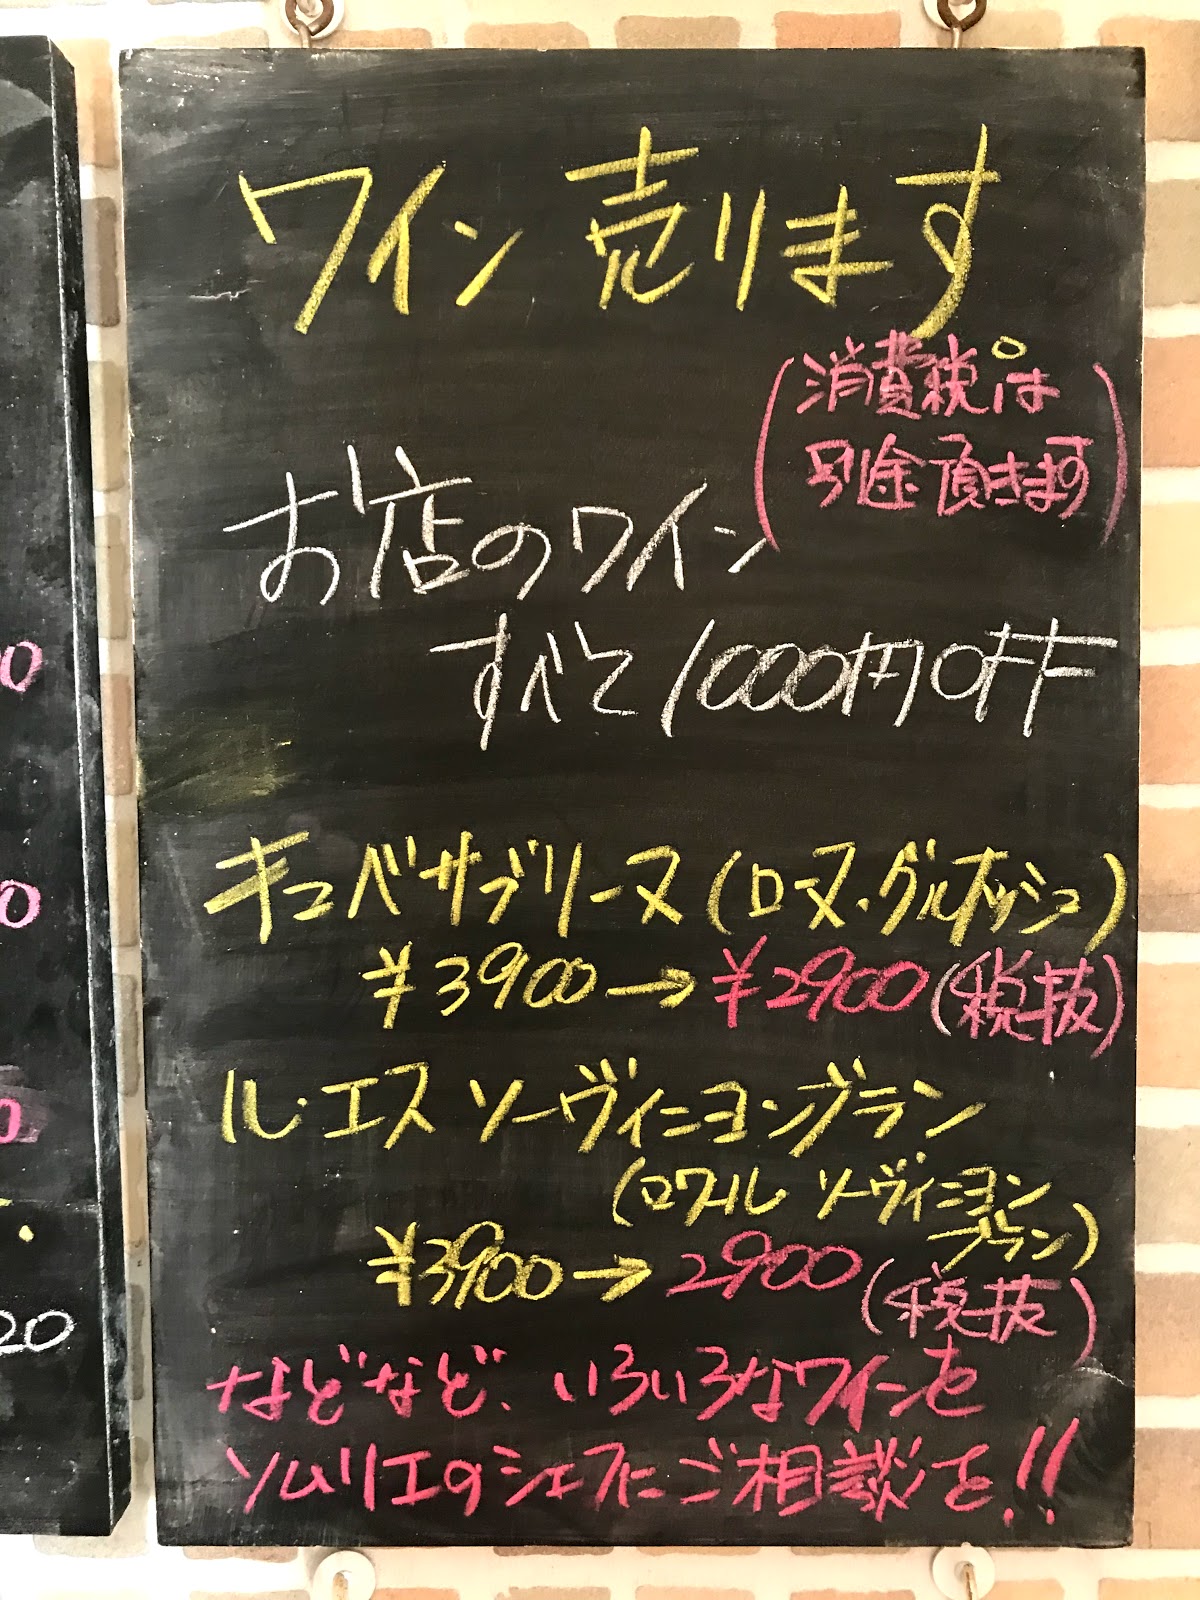 ワイン売ります。
(消費税は
別途頂きます)
お店のワイン
すべて1000円OFF
キュベサブリーヌ(ローヌ・グルナッシュ)
¥3900→¥2900(税抜)
ル・エスソーヴィニヨンブラン
(ロワール ソーヴィニヨン
ブラン)
¥3900→2900(税抜)
などなど、いろいろなワインを
ソムリエのシェフにご相談を!!
0
0
0
20